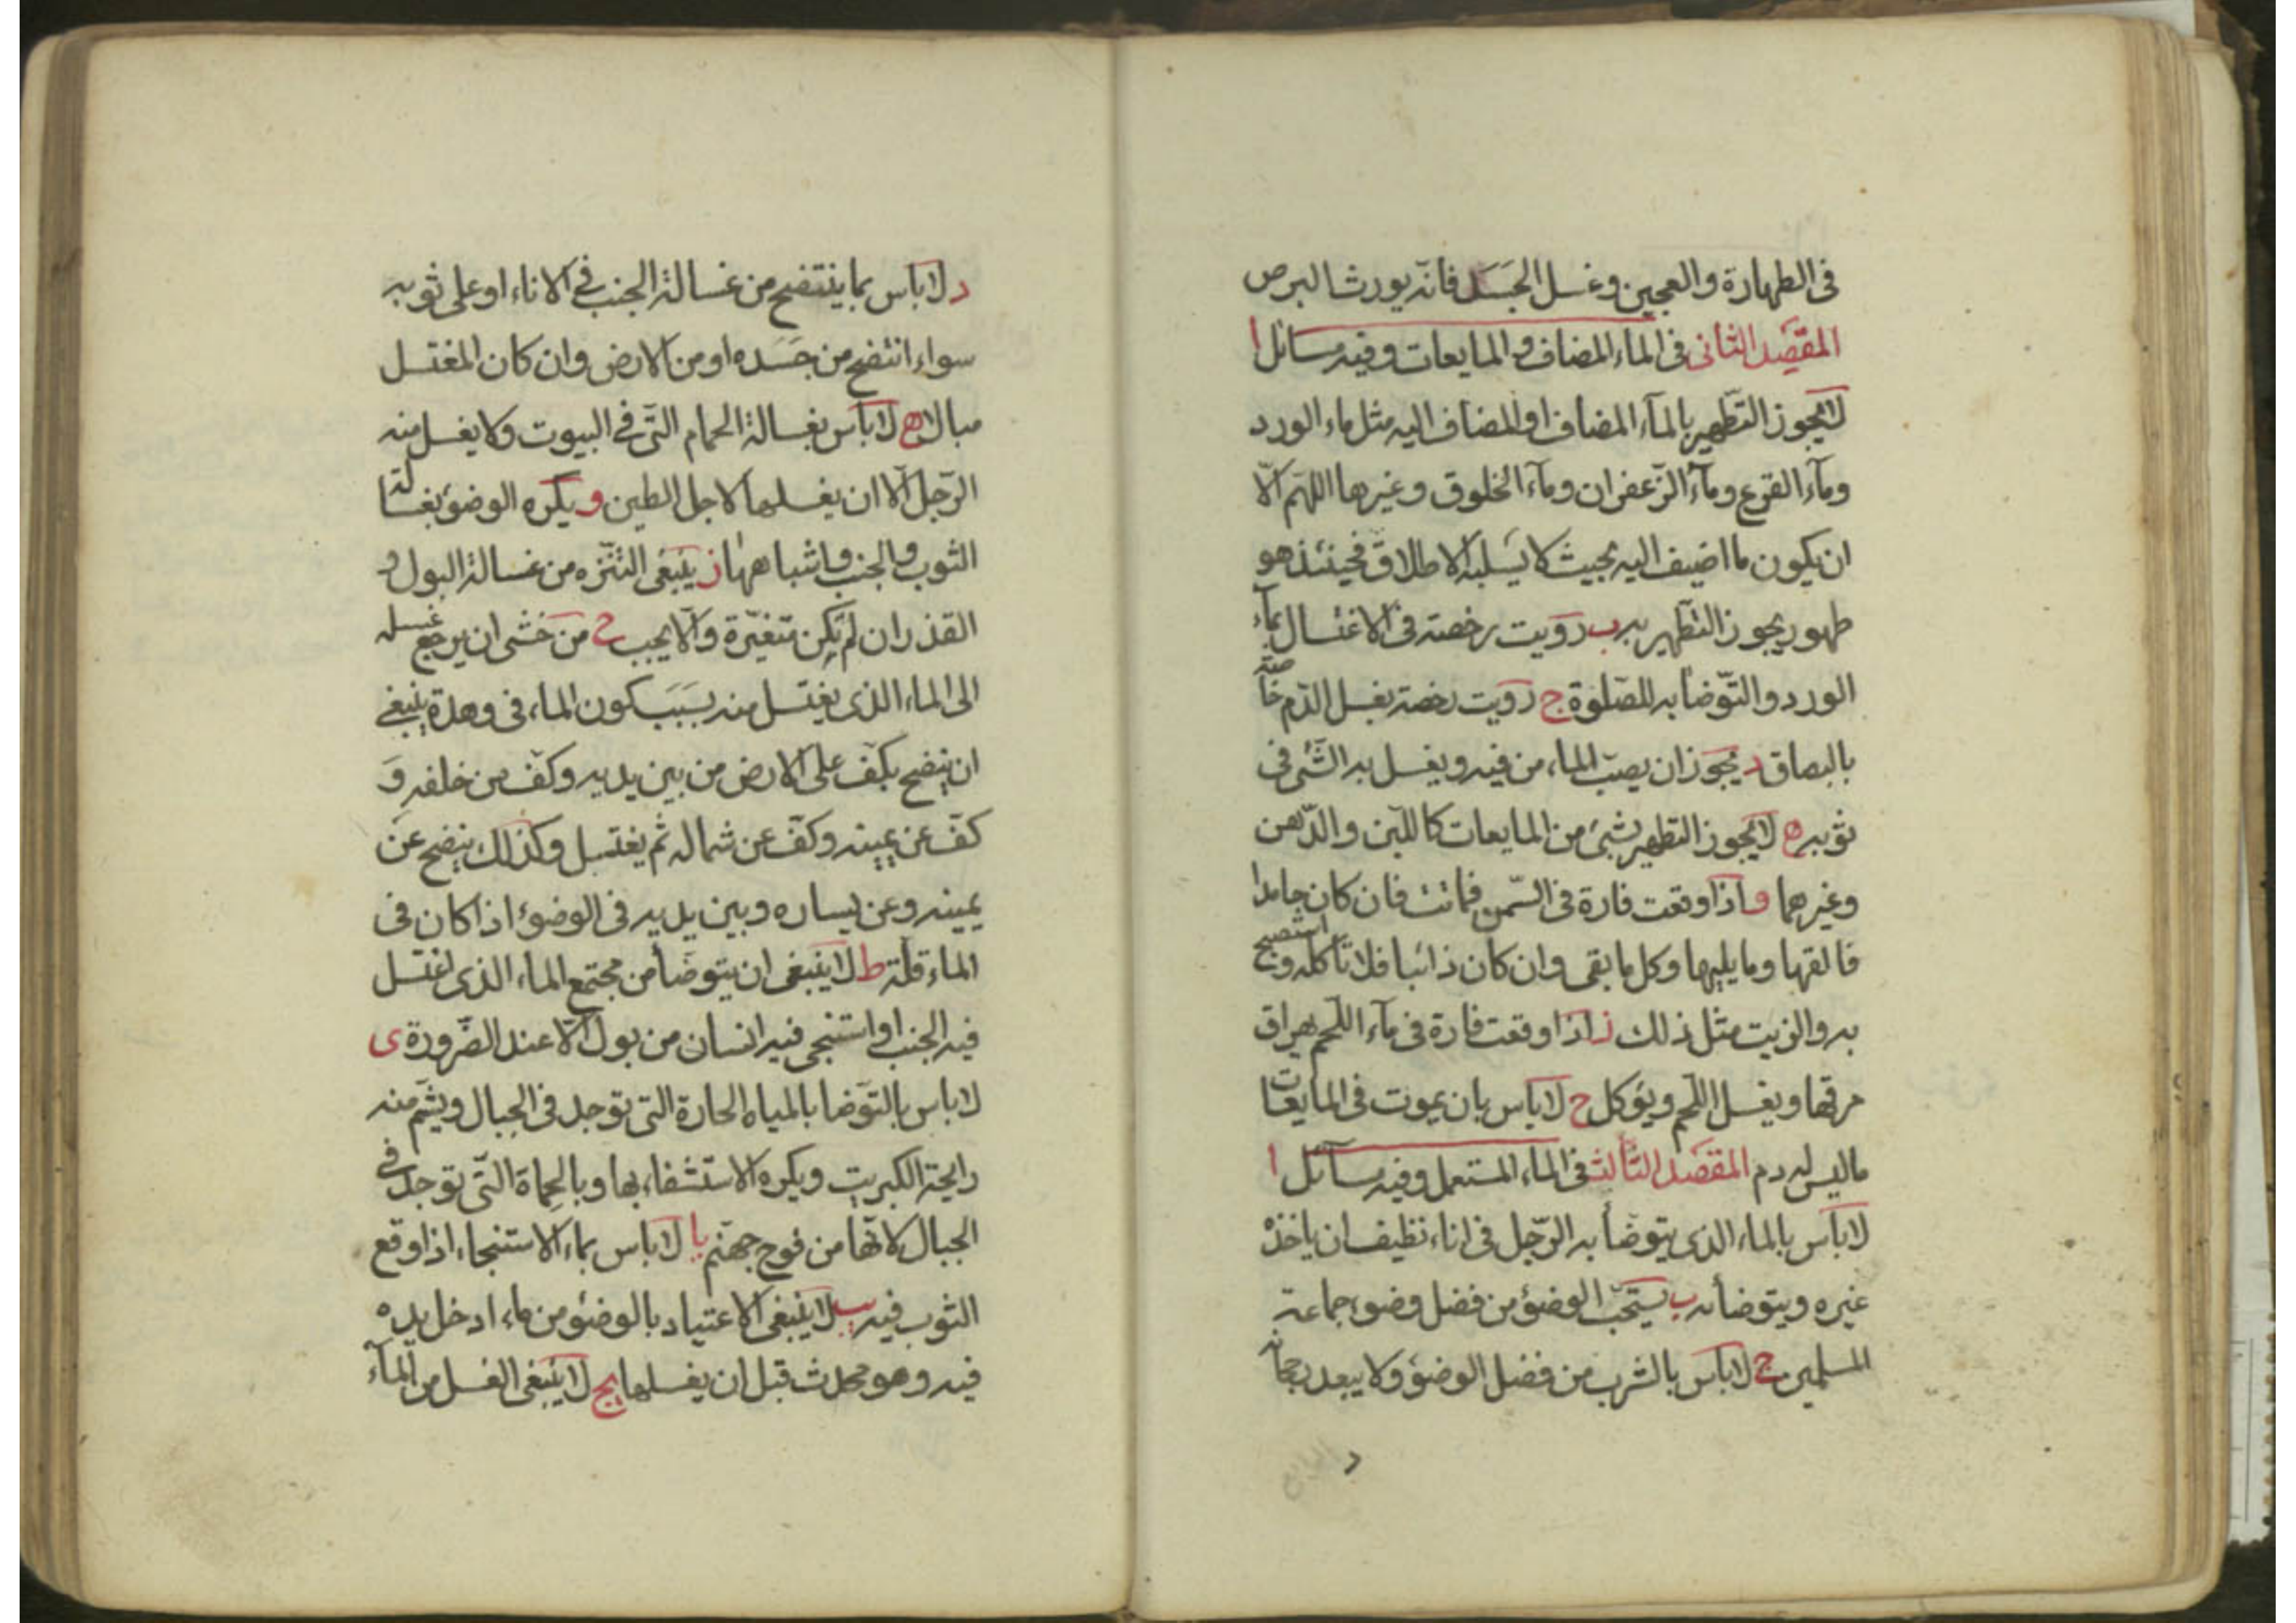 فى الطهارة والعجين وغسل الجَسَد فانّه يورث البرص
المقصد الثانى فى الماء المضاف والمايعات وفيه مسائل ا
لا يجوز التّطهير بالمآء المضاف او المضاف اليه مثل ماء الورد
ومآء القرع ومآء الزّعفران ومآء الخلوق وغيرها اللهمّ الّا
ان يكون ما اضيف اليه بحيث لا يسلبه الاطلاق فحينئذ هو
طهور يجوز التّطهير به ب رويت رخصة فى الاغتسال بمآء
الورد والتّوضأ به للصّلوة ج رويت رخصة بغسل الدّم خاصّة
بالبصاق د يجوز ان يصبّ الماء من فيه ويغسل به الشّئ فى
ثوبه ه لا يجوز التطهير بشئ من المايعات كاللبن والدّهن
وغيرهما و اذا وقعت فارة فى السّمن فماتت فان كان جامدا
فالقها وما يليها وكل ما بقى وان كان ذائبا فلا تاكله واستصبح
به والزيت مثل ذلك ز اذا وقعت فارة فى مآء اللّحم يهراق
مرقها ويغسل اللّحم ويؤكل ح لا باس بان يموت فى المايعات
ما ليس له دم المقصد الثالث فى الماء المستعمل وفيه مسآئل ا
لا بأس بالماء الذى يتوضأ به الرّجل فى اناء نظيف ان ياخذه
غيره ويتوضأ به ب يستحبّ الوضؤ من فضل وضوء جماعة
المسلمين ج لا باس بالشرب من فضل الوضؤ ولا يبعد رجحانه
د
د لا باس بما ينتضح من غسالة الجنب فى الاناء او على ثوبه
سواء انتضح من جَسَده او من الارض وان كان المغتسل
مبالا ه لا باس بغسالة الحمام التّى فى البيوت ولا يغسل منه
الرّجل الّا ان يغسلها لاجل الطين و يكره الوضؤ بغسالة
الثوب والجنب واشباههما ز ينبغى التنزّه من غسالة البول و
القذر ان لم تكن متغيّرة والّا يجب ح من خشى ان يرجع غسله
الى الماء الذى يغتسل منه بسَبَب كون الماء فى وهدة ينبغى
ان ينضح بكفّ على الارض من بين يديه وكفّ من خلفه وَ
كفّ عن يمينه وكفّ عن شماله ثم يغتسل وكذلك ينضح عن
يمينه وعن يساره وبين يديه فى الوضوء اذا كان فى
الماء قلّة ط لا ينبغى ان يتوضأ من مجتمع الماء الذى اغتسل
فيه الجنب او استنجى فيه انسان من بول الّا عند الضّرورة ى
لا باس بالتوّضا بالمياه الحارة التى توجد فى الجبال ويشمّ منه
رايحة الكبريت ويكره الاستشفاء بها وبالحماة التّى توجد فى
الجبال لانّها من فوح جهنّم يا لا باس بماء الاستنجاء اذا وقع
الثوب فيه يب لا ينبغى الاعتياد بالوضؤ من ماء ادخل يده
فيه وهو محدث قبل ان يغسلها يج لا ينبغى الغسل من المآء